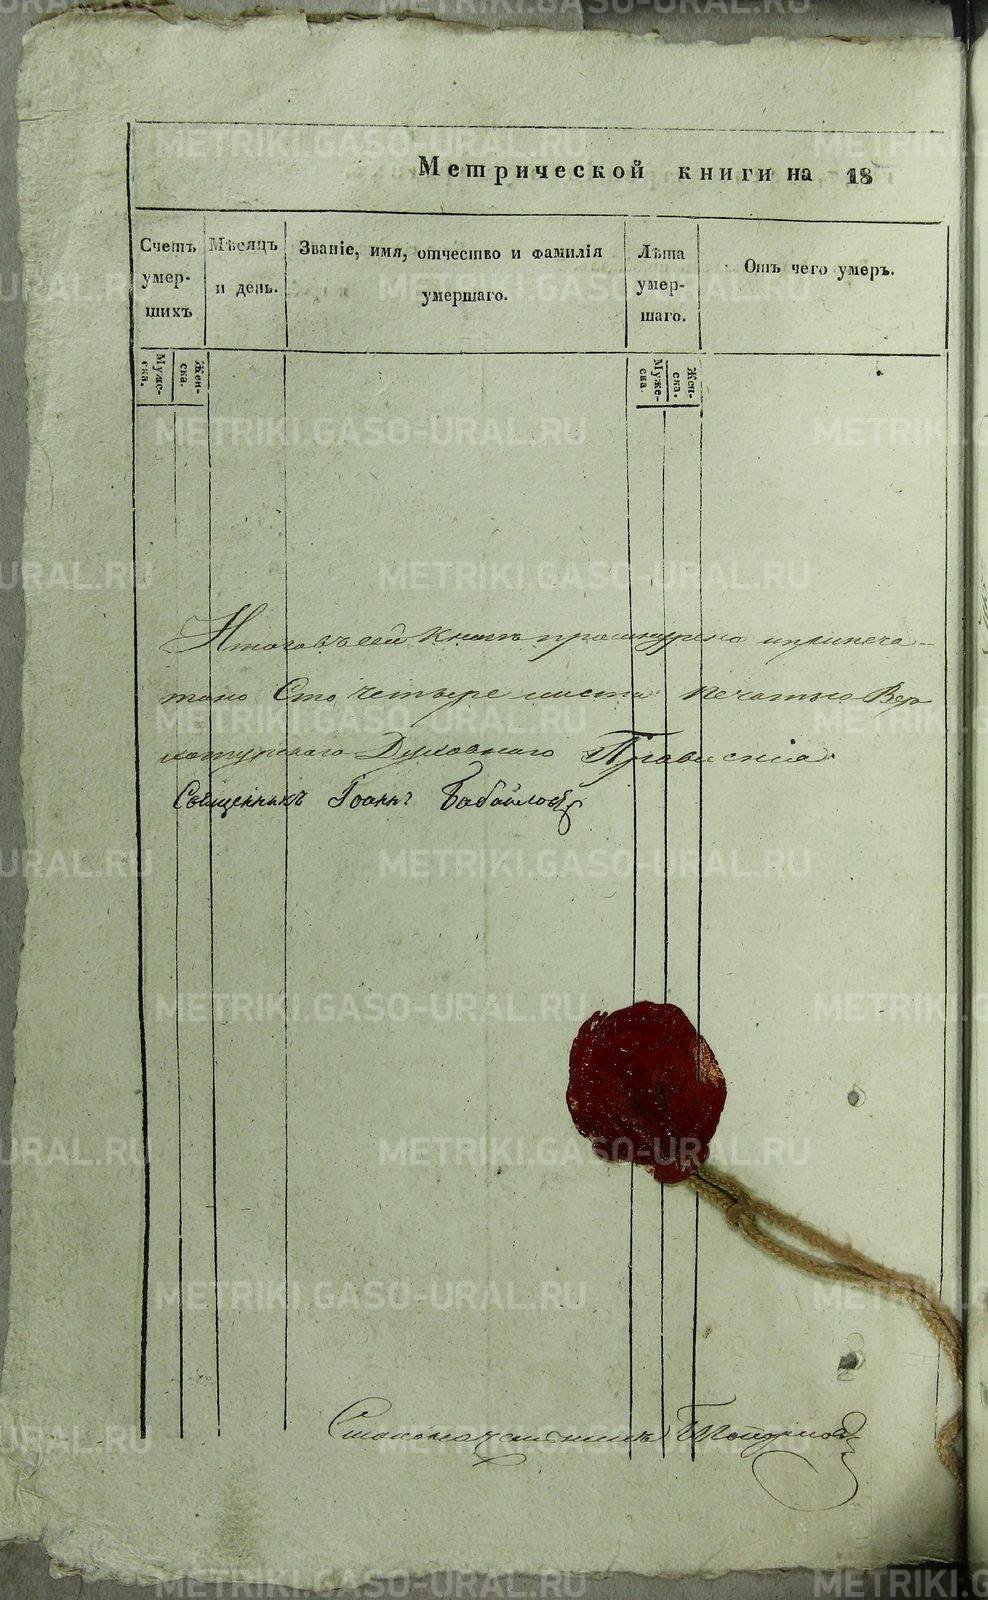 Метрической книги на 18
Счетъ умер- шихъ
Мѣсяцъ и день.
Званіе, имя, отчество и фамилія умершаго.
Лѣта умер- шаго.
Отъ чего умеръ.
Муже- ска.
Жен- ска.
Муже- ска.
Жен- ска.
Итого въ сей книгѣ прошнурено и припеча-
тано Сто четыре листа печатью Вер-
хотурскаго Духовнаго Правленія.
Священникъ Іоаннъ Бабайловъ
Столоначальникъ
METRIKI.GASO-URAL.RU